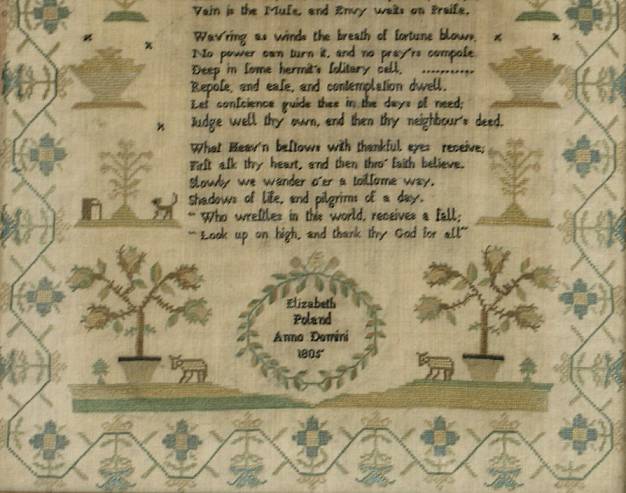 Vain is the Muſe, and Envy waits on Praiſe.
Wav'ring as winds the breath of fortune blows,
No power can turn it, and no pray'rs compoſe.
Deep in ſome hermit's ſolitary cell, ...........
Repoſe, and eaſe, and contemplation dwell.
Let conſcience guide thee in the days of need;
Judge well thy own, and then thy neighbour's deed.
What Heav'n beſtows with thankful eyes receive;
Firſt aſk thy heart, and then thro' faith believe.
Slowly we wander o'er a toilſome way,
Shadows of life, and pilgrims of a day.
"Who wreſtles in this world, receives a fall;
"Look up on high, and thank thy God for all"
Elizabeth
Poland
Anno Domini
1805